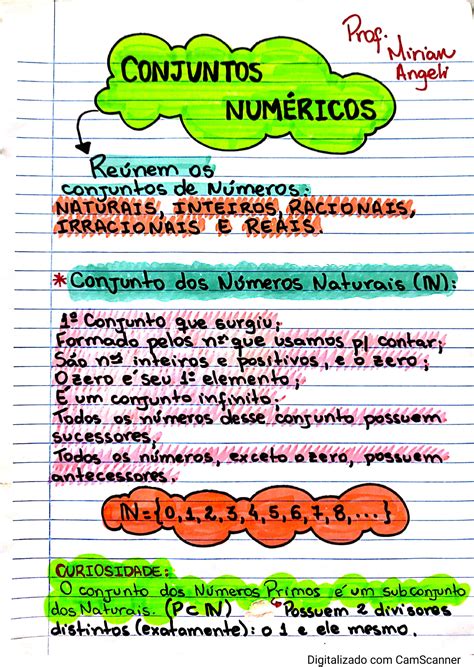 Prof. Mirian Angeli
CONJUNTOS
NUMÉRICOS
Reúnem os
conjuntos de Números:
NATURAIS, INTEIROS, RACIONAIS,
IRRACIONAIS E REAIS.
* Conjunto dos Números Naturais (IN):
1º Conjunto que surgiu;
Formado pelos nºs que usamos p/ contar;
São nºs inteiros e positivos, e o zero;
O zero é seu 1º elemento;
É um conjunto infinito.
Todos os números desse conjunto possuem
sucessores,
Todos os números, exceto o zero, possuem
antecessores.
IN={0,1,2,3,4,5,6,7,8,...}
CURIOSIDADE:
O conjunto dos Números Primos é um subconjunto
dos Naturais. (P⊂IN) Possuem 2 divisores
distintos (exatamente): o 1 e ele mesmo.
Digitalizado com CamScanner